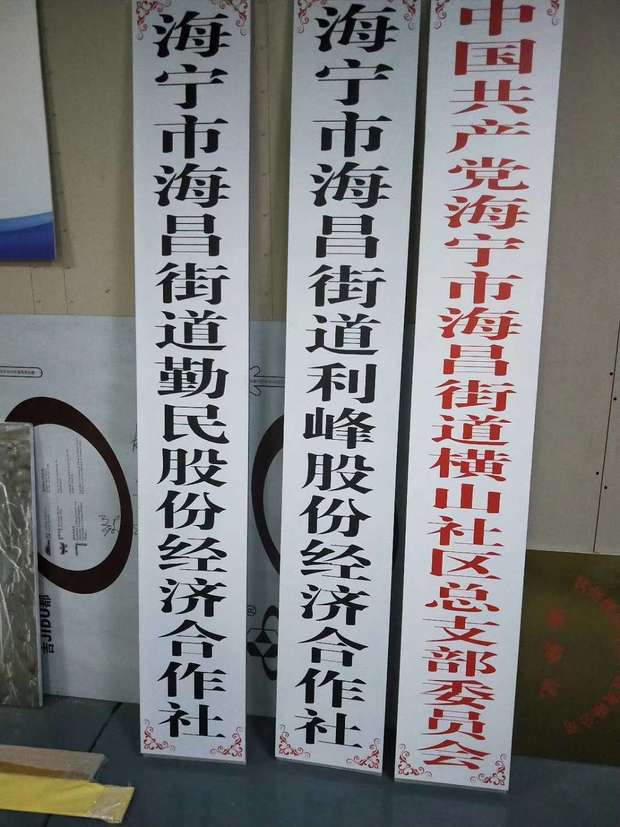 海宁市海昌街道勤民股份经济合作社
海宁市海昌街道利峰股份经济合作社
中国共产党海宁市海昌街道横山社区总支部委员会